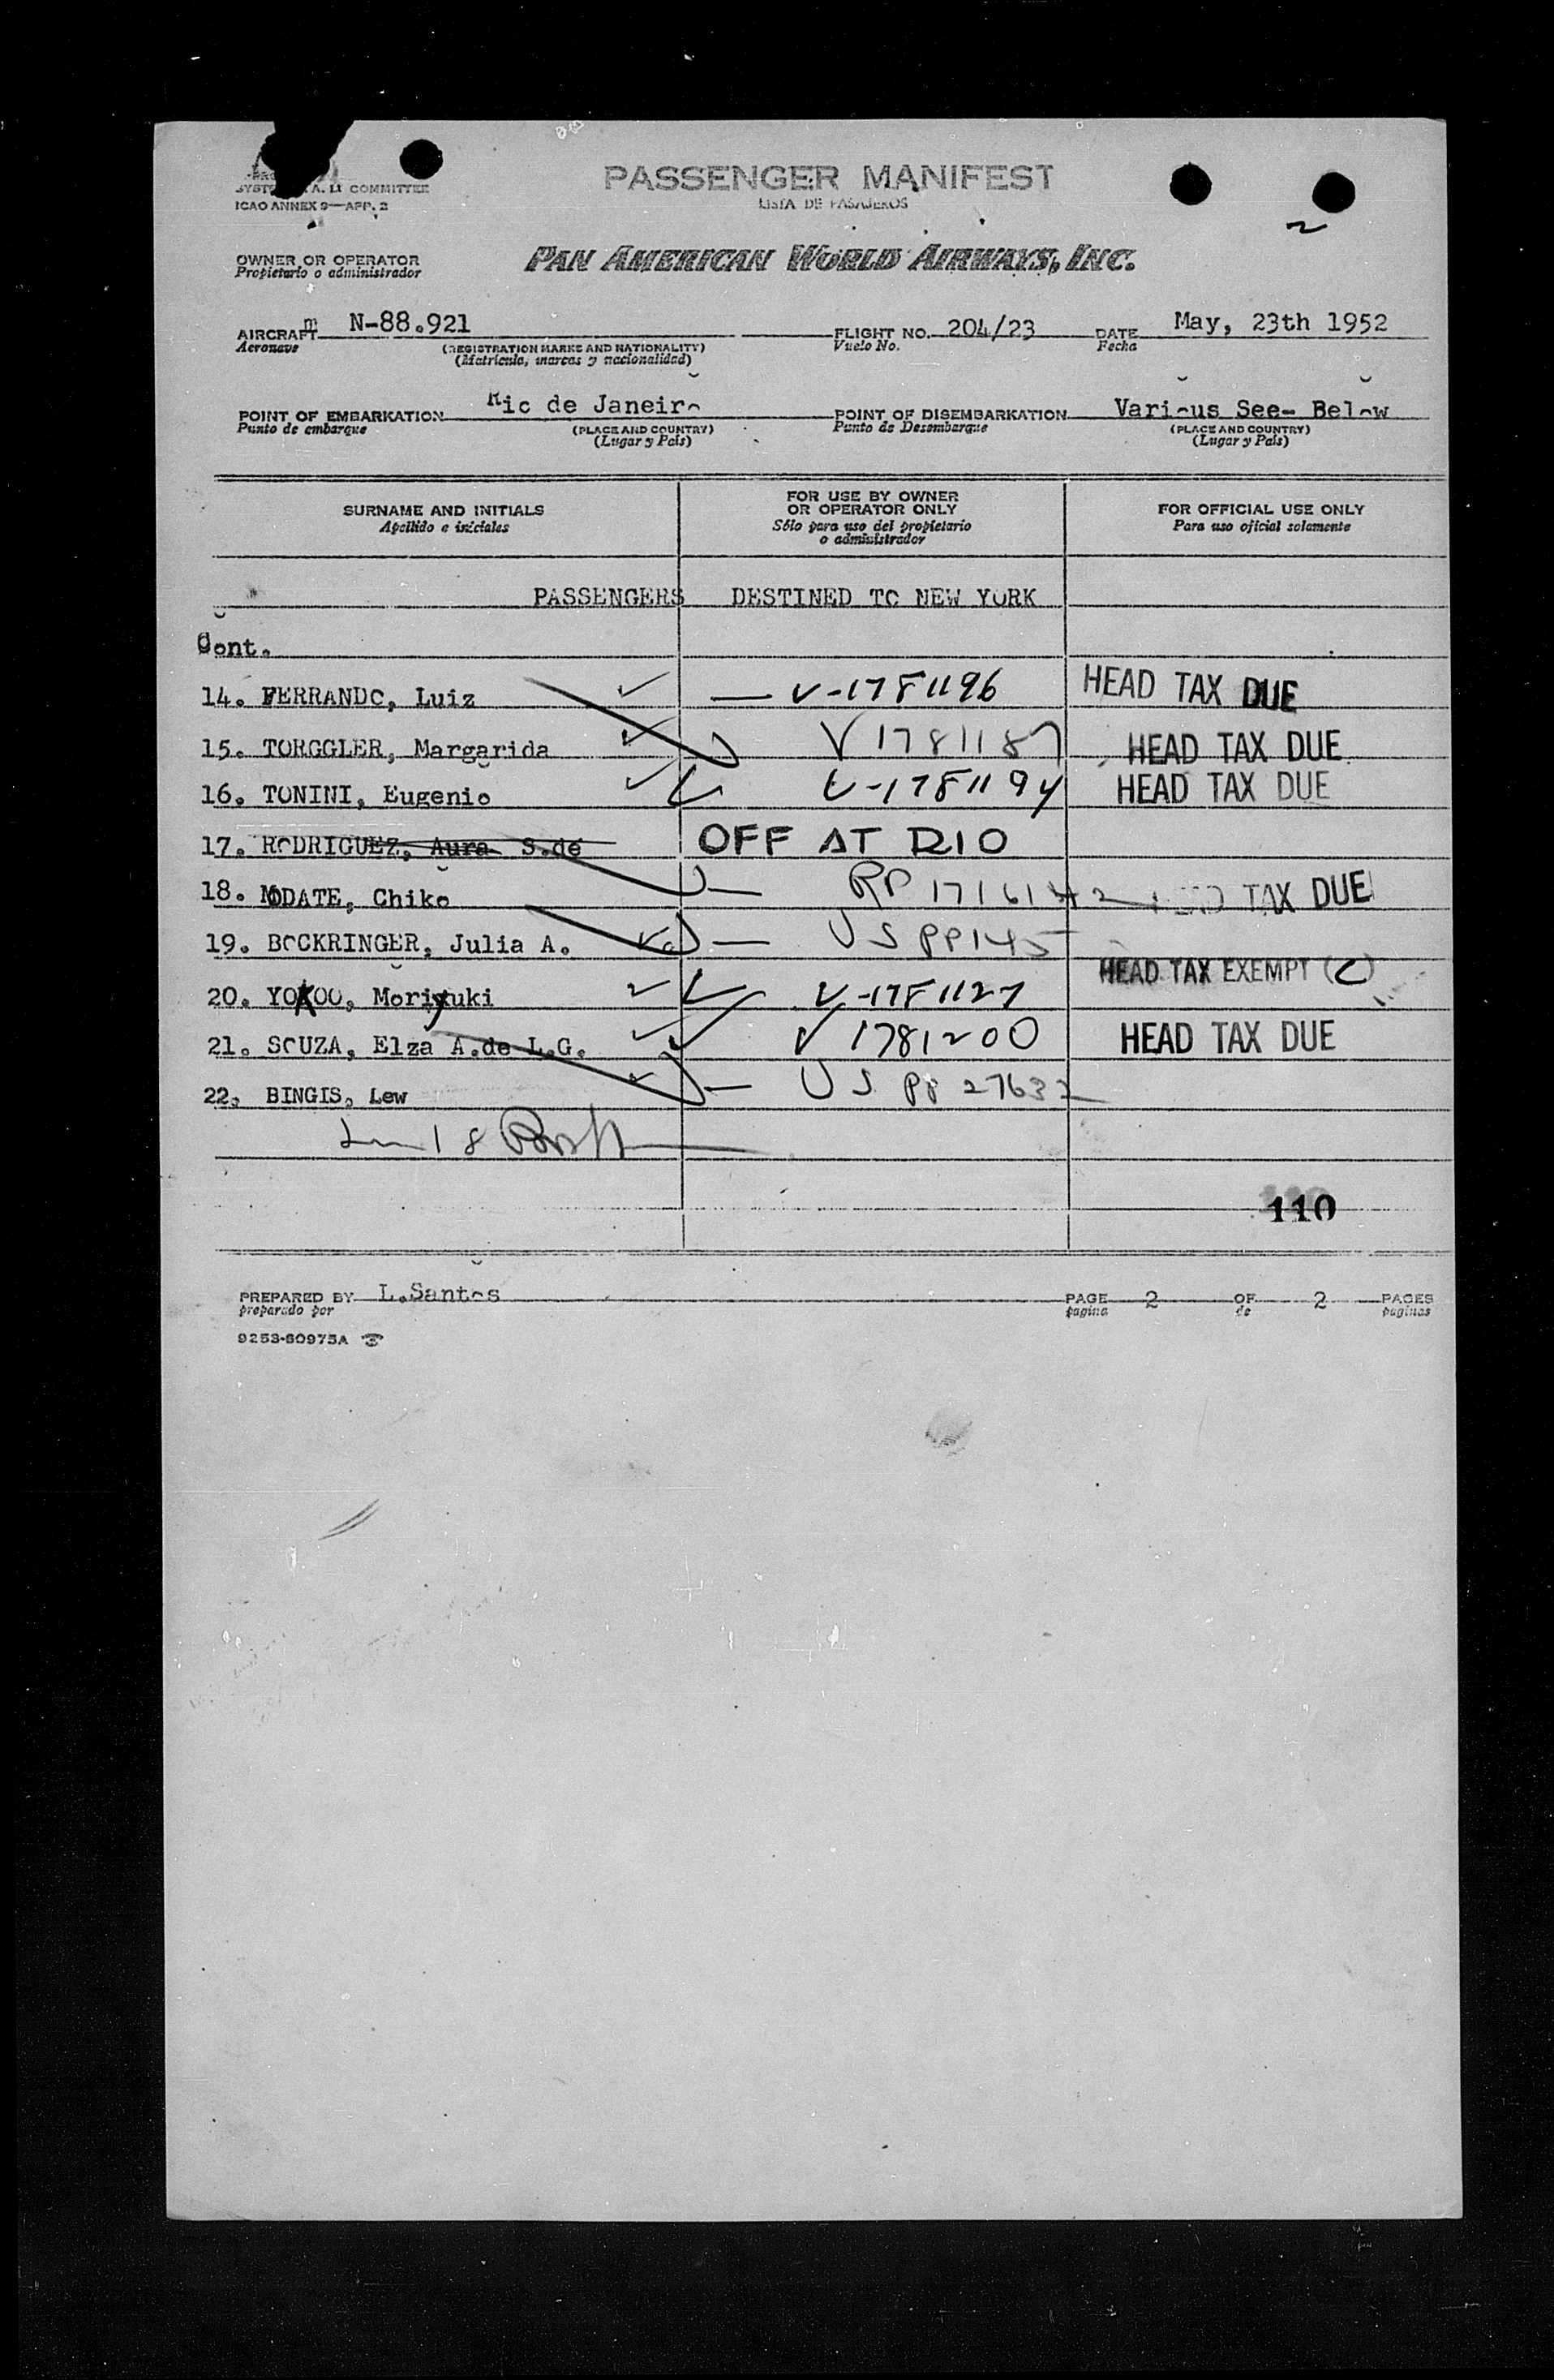 SYSTEM A. L. COMMITTEE
ICAO ANNEX 9—APP. 2
PASSENGER MANIFEST
LISTA DE PASAJEROS
2
OWNER OR OPERATOR
Propietario o administrador
PAN AMERICAN WORLD AIRWAYS, INC.
AIRCRAFT m N-88.921 FLIGHT NO. 204/23 DATE May, 23th 1952
Aeronave (REGISTRATION MARKS AND NATIONALITY) Vuelo No. Fecha
(Matrícula, marcas y nacionalidad)
POINT OF EMBARKATION Rio de Janeiro POINT OF DISEMBARKATION Various See- Below
Punto de embarque (PLACE AND COUNTRY) Punto de Desembarque (PLACE AND COUNTRY)
(Lugar y País) (Lugar y País)
SURNAME AND INITIALS FOR USE BY OWNER OR OPERATOR ONLY FOR OFFICIAL USE ONLY
Apellido e iniciales Sólo para uso del propietario o administrador Para uso oficial solamente
PASSENGERS DESTINED TO NEW YORK
Cont.
14. FERRANDO, Luiz V-1781196 HEAD TAX DUE
15. TORGGLER, Margarida V 1781187 HEAD TAX DUE
16. TONINI, Eugenio V-1781194 HEAD TAX DUE
17. RODRIGUEZ, Aura S.de OFF AT RIO
18. MODATE, Chiko RP 1716142 HEAD TAX DUE
19. BOCKRINGER, Julia A. US PP 145
HEAD TAX EXEMPT (C)
20. YOKOO, Moriyuki V-1781127
21. SOUZA, Elza A.de L.G. V 1781200 HEAD TAX DUE
22. BINGIS, Lew US PP 27632
110
PREPARED BY L.Santos PAGE 2 OF 2 PAGES
preparado por pagina de paginas
9253-60975A